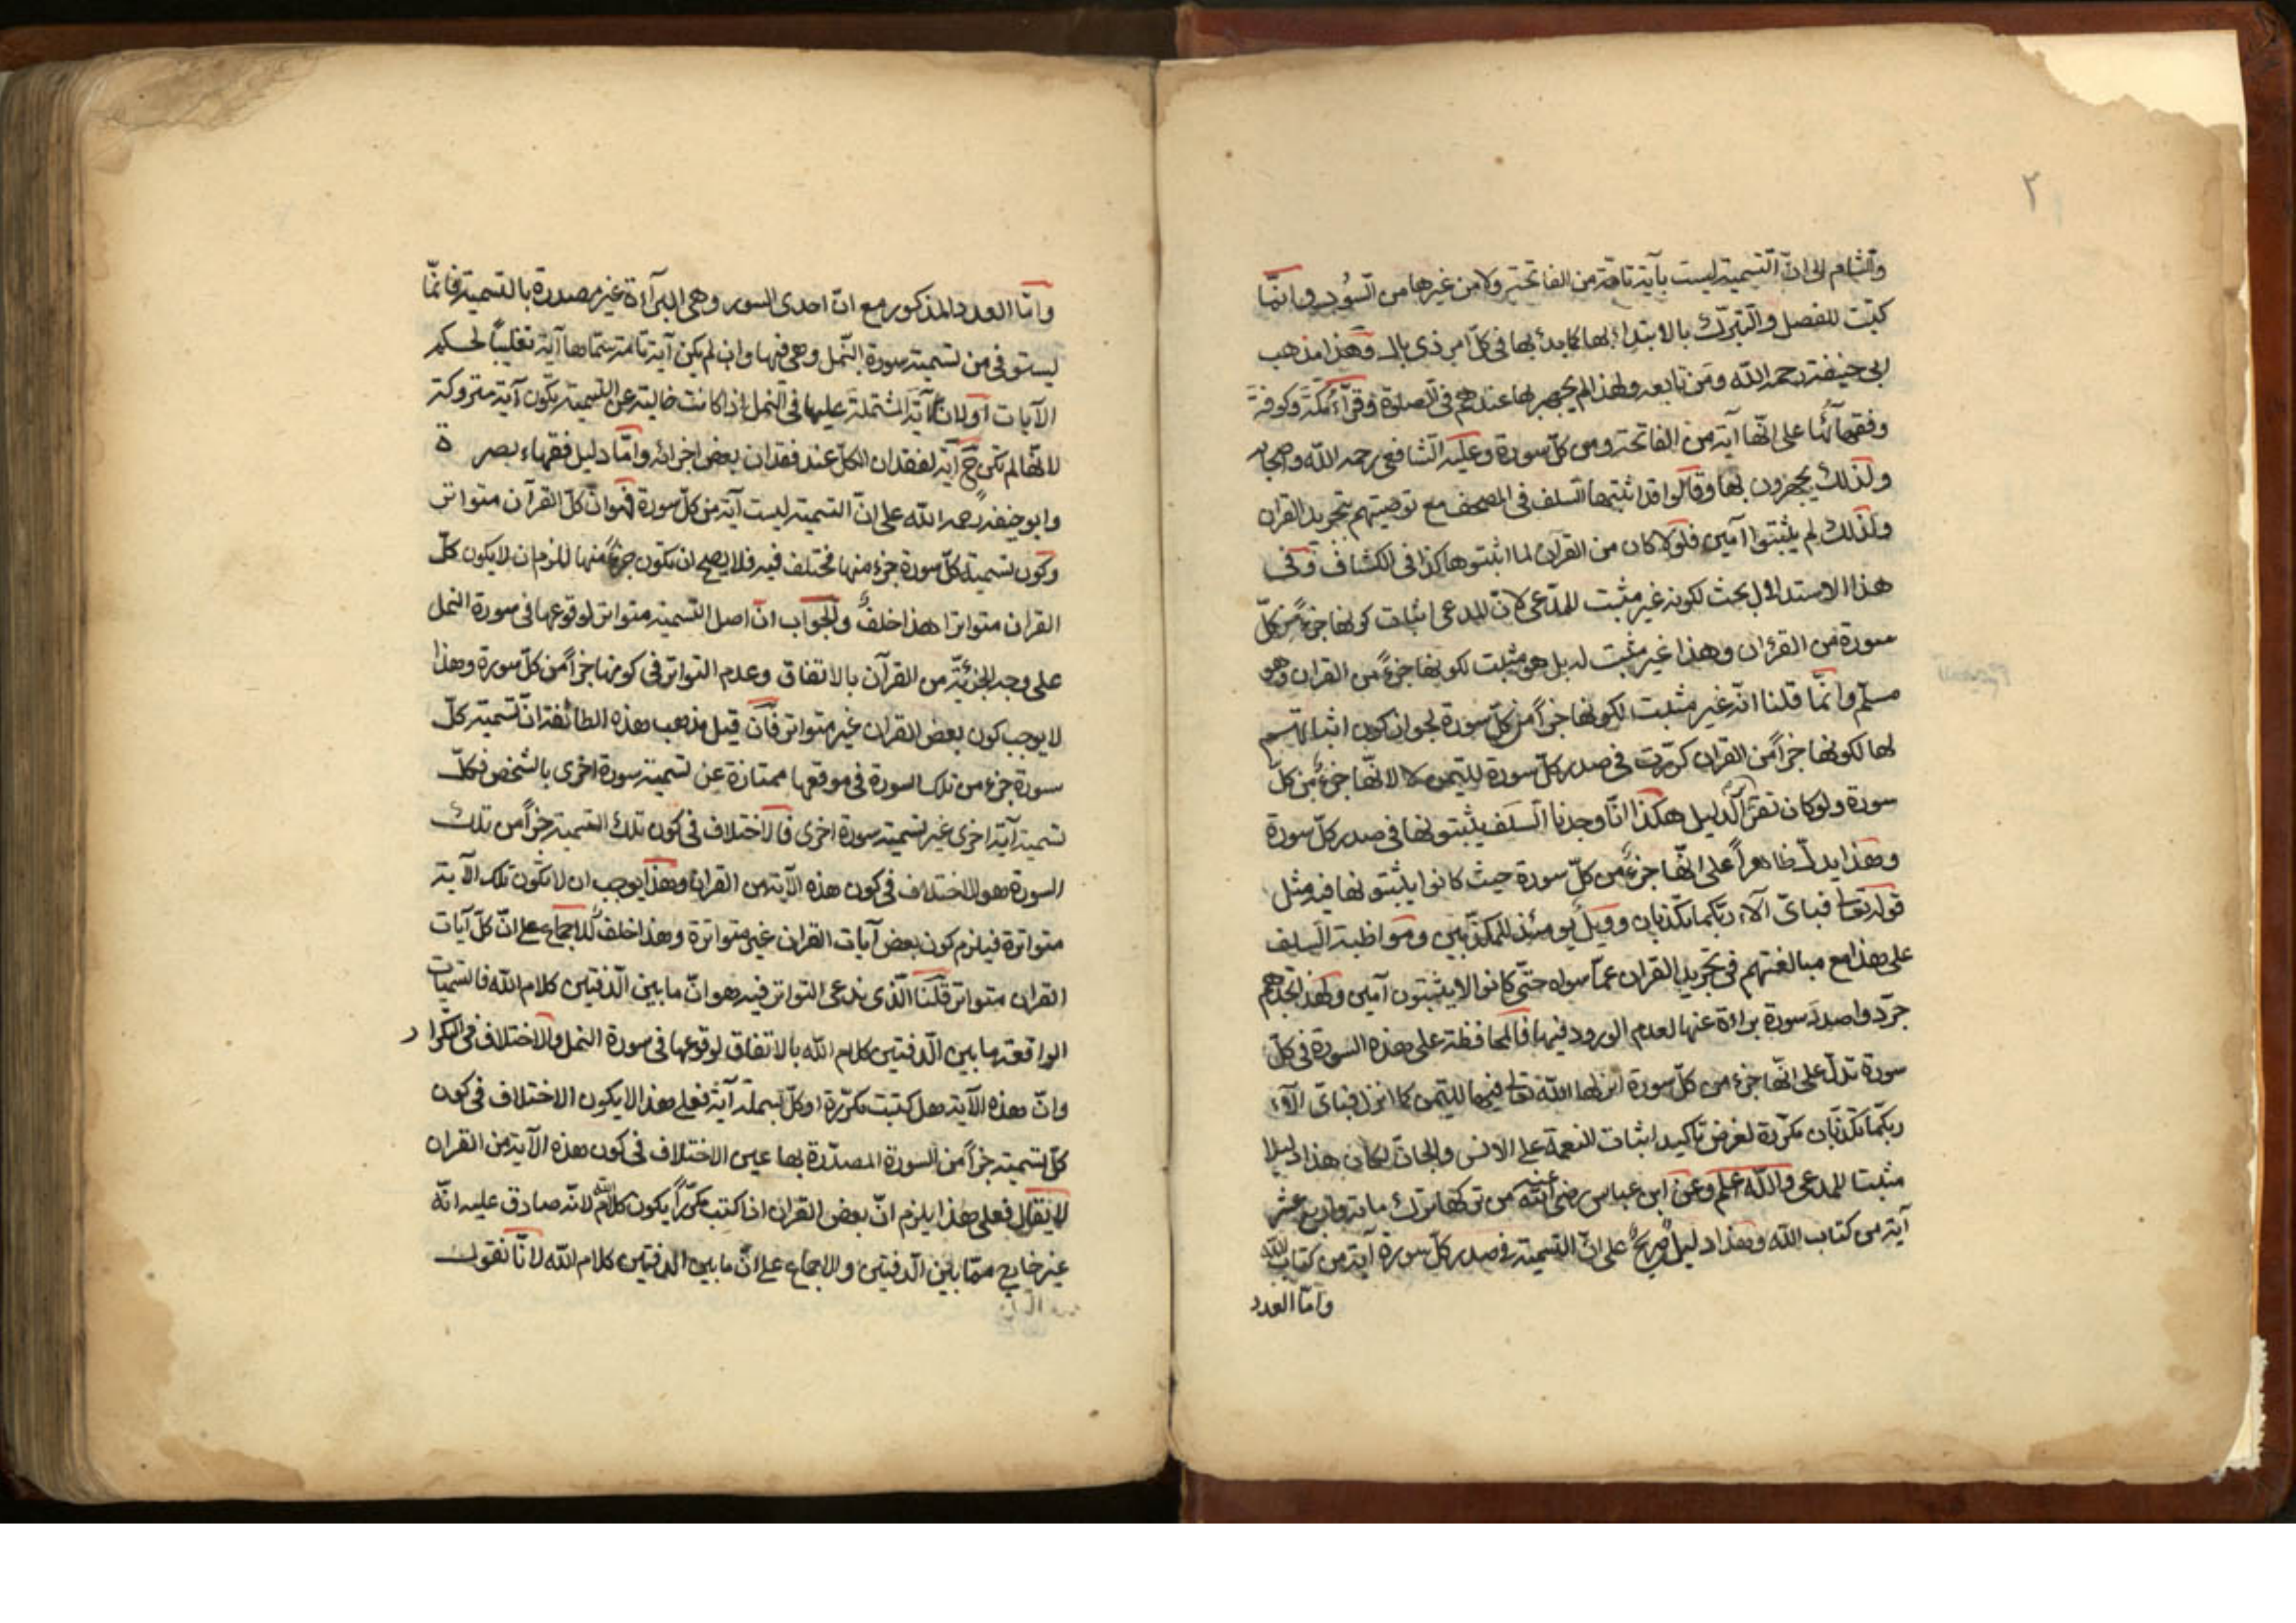 ٢
والشام الى انّ التسمية ليست بآية تامّة من الفاتحة ولا من غيرها من السُّور وانّما
كتبت للفصل والتبرّك بالابتداء بها كما بدئ بها في كلّ امر ذي بال وهذا مذهب
ابي حنيفة رحمه الله ومَن تابعه ولهذا لم يجهر بها عندهم في الصلوة وقرّاء مكّة وكوفة
وفقهاؤُنا على انّها آية من الفاتحة ومن كلّ سورة وعليه الشافعي رحمه الله واصحابه
ولذلك يجهرون بها وقالوا قد اثبتها السلف في المصحف مع توصيتهم بتجريد القران
ولذلك لم يثبتوا آمين فلولا كان من القران لما اثبتوها كذا في الكشاف وفي
هذا الاستدلال بحث لكونه غير مثبت للمدّعى لانّ المدعى اثبات كونها جزءً من كلّ
سورة من القرٰان وهذا غير مثبت له بل هو مثبت لكونها جزءً من القران وهو
مسلّم وانّما قلنا انّه غير مثبت لكونها جزأً من كلّ سورة لجواز كون اثباتهم
لها لكونها جزأً من القران كرّرت في صدر كلّ سورة للتيمن لا لانّها جزءٌ من كلّ
سورة ولو كان تقرّ الدليل هكذا انّا وجدنا السلف يثبتونها في صدر كلّ سورة
وهذا يدلّ ظاهراً على انّها جزءٌ من كلّ سورة حيث كانوا يثبتونها فيه مثل
قوله تعالى فباىّ آلاء ربّكما تكذّبان وويلٌ يومئذ للمكذّبين ومواظبة السلف
على هذا مع مبالغتهم في تجريد القران عمّا سواه حتّى كانوا لا يثبتون آمين ولهذا تجدهم
جرّدوا صدر سورة براءة عنها لعدم الورود فيها فالمحافظة على هذه السورة في كلّ
سورة تدلّ على انّها جزء من كلّ سورة انزلها الله تعالى فيها للتيمّن كما انزل فباىّ آلاء
ربّكما تكذّبان مكرّرة لغرض تأكيد اثبات النعمة على الانس والجانّ لكان هذا دليلا
مثبتا للمدعى والله اعلم وعن ابن عباس رضى الله عنه من تركها ترك مائة واربع عشر
آية من كتاب الله وهذا دليلٌ صريحٌ على انّ التسمية في صدر كلّ سورة آية من كتاب الله
وامّا العدد
وامّا العدد المذكور مع انّ احدى السور وهي البرآءة غير مصدرة بالتسمية فانّما
يستوفى من تسمية سورة النّمل وهي فيها وان لم يكن آية تامّة سمّاها آية تغليبًا لحكم
الآيات اولانّ الآية المشتملة عليها في النمل اذا كانت خالية عن التسمية تكون آية متروكة
لانّها لم تكن ح آية لفقدان الكلّ عند فقدان بعض اجزائه وامّا دليل فقهاء بصرة
وابو حنيفة رحمه الله على انّ التسمية ليست آية من كلّ سورة فهو انّ كلّ القرآن متواتر
وكون تسمية كلّ سورة جزء منها مختلف فيه فلا يصح ان تكون جزءً منها للزم ان لا يكون كلّ
القران متواترا هذا خلفٌ والجواب انّ اصل التسمية متواتر لوقوعها في سورة النمل
على وجه الجزئيّة من القرآن بالاتفاق وعدم التواتر في كونها جزأً من كلّ سورة وهذا
لا يوجب كون بعض القران غير متواتر فان قيل مذهب هذه الطائفة انّ تسمية كلّ
سورة جزء من تلك السورة في موقعها ممتازة عن تسمية سورة اخرى بالشخص فكلّ
تسمية آية اخرى غير تسمية سورة اخرى فالاختلاف في كون تلك التسمية جزأً من تلك
السورة هو الاختلاف في كون هذه الآية من القران وهذا يوجب ان لا تكون تلك الآية
متواترة فيلزم كون بعض آيات القران غير متواترة وهذا خلفٌ للاجماع على انّ كلّ آيات
القران متواتر قلنا الّذى ندعى التواتر فيه هو انّ ما بين الدفتين كلام الله فالتسميات
الواقعة ما بين الدفتين كلام الله بالاتفاق لوقوعها في سورة النمل والاختلاف في التكرار
وانّ هذه الآية هل كتبت مكرّرة او كلّ بسملة آية فعلى هذا لا يكون الاختلاف في كون
كلّ تسمية جزأً من السورة المصدّرة بها عين الاختلاف في كون هذه الآية من القران
لا يقال فعلى هذا يلزم انّ بعض القران اذا كتب مكرّراً يكون كلام الله لانّه صادق عليه انّه
غير خارج ممّا بين الدفتين والاجماع على انّ ما بين الدفتين كلام الله لانّا نقول